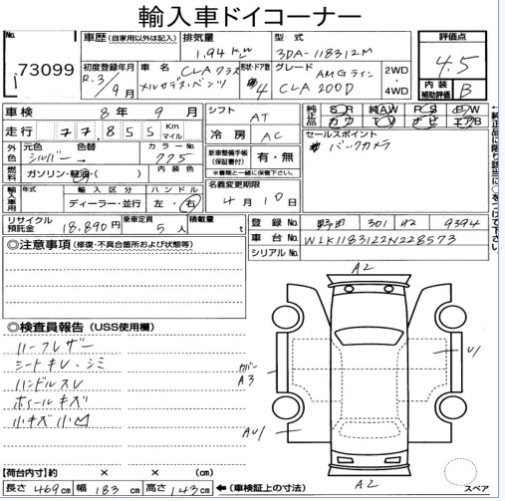 輸入車ドイコーナー
No.
73099
車歴(自家用以外は記入)
排気量
1.94 kw
型式
3DA-118312M
評価点
4.5
初度登録年月
R.3/9月
車名
メルセデス・ベンツ
CLAクラス
形状・ドア数
4
グレード
AMGライン
CLA 200D
2WD
4WD
内装
補助評価
B
車検
8年9月
シフト
AT
純正品
SR
純AW
PS
PW
カワ
TV
ナビ
エアB
走行
77,855
Km
マイル
冷房
AC
セールスポイント
バックカメラ
外色
元色
シルバー
色替
カラーNo.
775
新車整備手帳
(保証書付)
有・無
※書類と一緒に保管下さい。
燃料
ガソリン・軽油( )
内装色
名義変更期限
4月10日
輸入車用
年式
輸入区分
ディーラー・並行
ハンドル
左・右
リサイクル
預託金
18,890円
乗車定員
5人
積載量
t
登録No.
野田 301 ね 9394
車台No.
W1K1183122N228573
シリアルNo.
◎注意事項(修復・不具合箇所および状態等)
◎検査員報告(USS使用欄)
ハーフレザー
シートキレ・シミ
ハンドルスレ
ホイールキズ
小キズ小凹
A2
カバー
A3
U1
AU1
A2
スペア
【荷台内寸】約 × × (cm)
長さ 469cm 幅 183cm 高さ 143cm
←(車検証上の寸法)
←純正品に限り該当に○をつけて下さい。